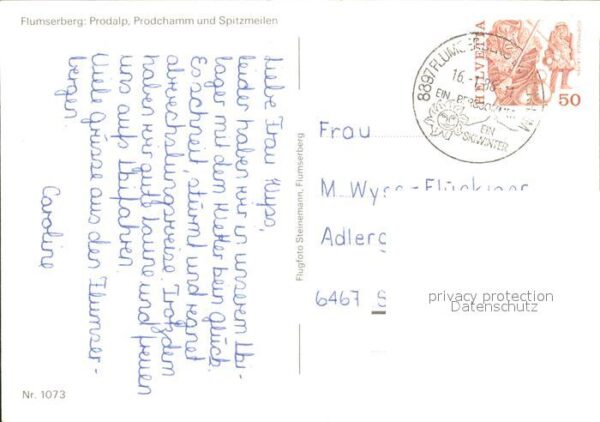 Flumserberg: Prodalp, Prodchamm und Spitzmeilen
Liebe Frau Wyss,
leider haben wir in unserem Ski-
lager mit dem Wetter kein Glück.
Es schneit, stürmt und regnet
abwechslungsweise. Trotzdem
haben wir gute Laune und freuen
uns aufs Skifahren.
Viele Grüsse aus den Flumser-
bergen
Caroline
Nr. 1073
Flugfoto Steinemann, Flumserberg
8897 FLUMS
16.
EIN
EIN
SKIWINTER
HELVETIA
50
Frau
M. Wyss-Flückiger
Adlerg
6467 S
privacy protection
Datenschutz